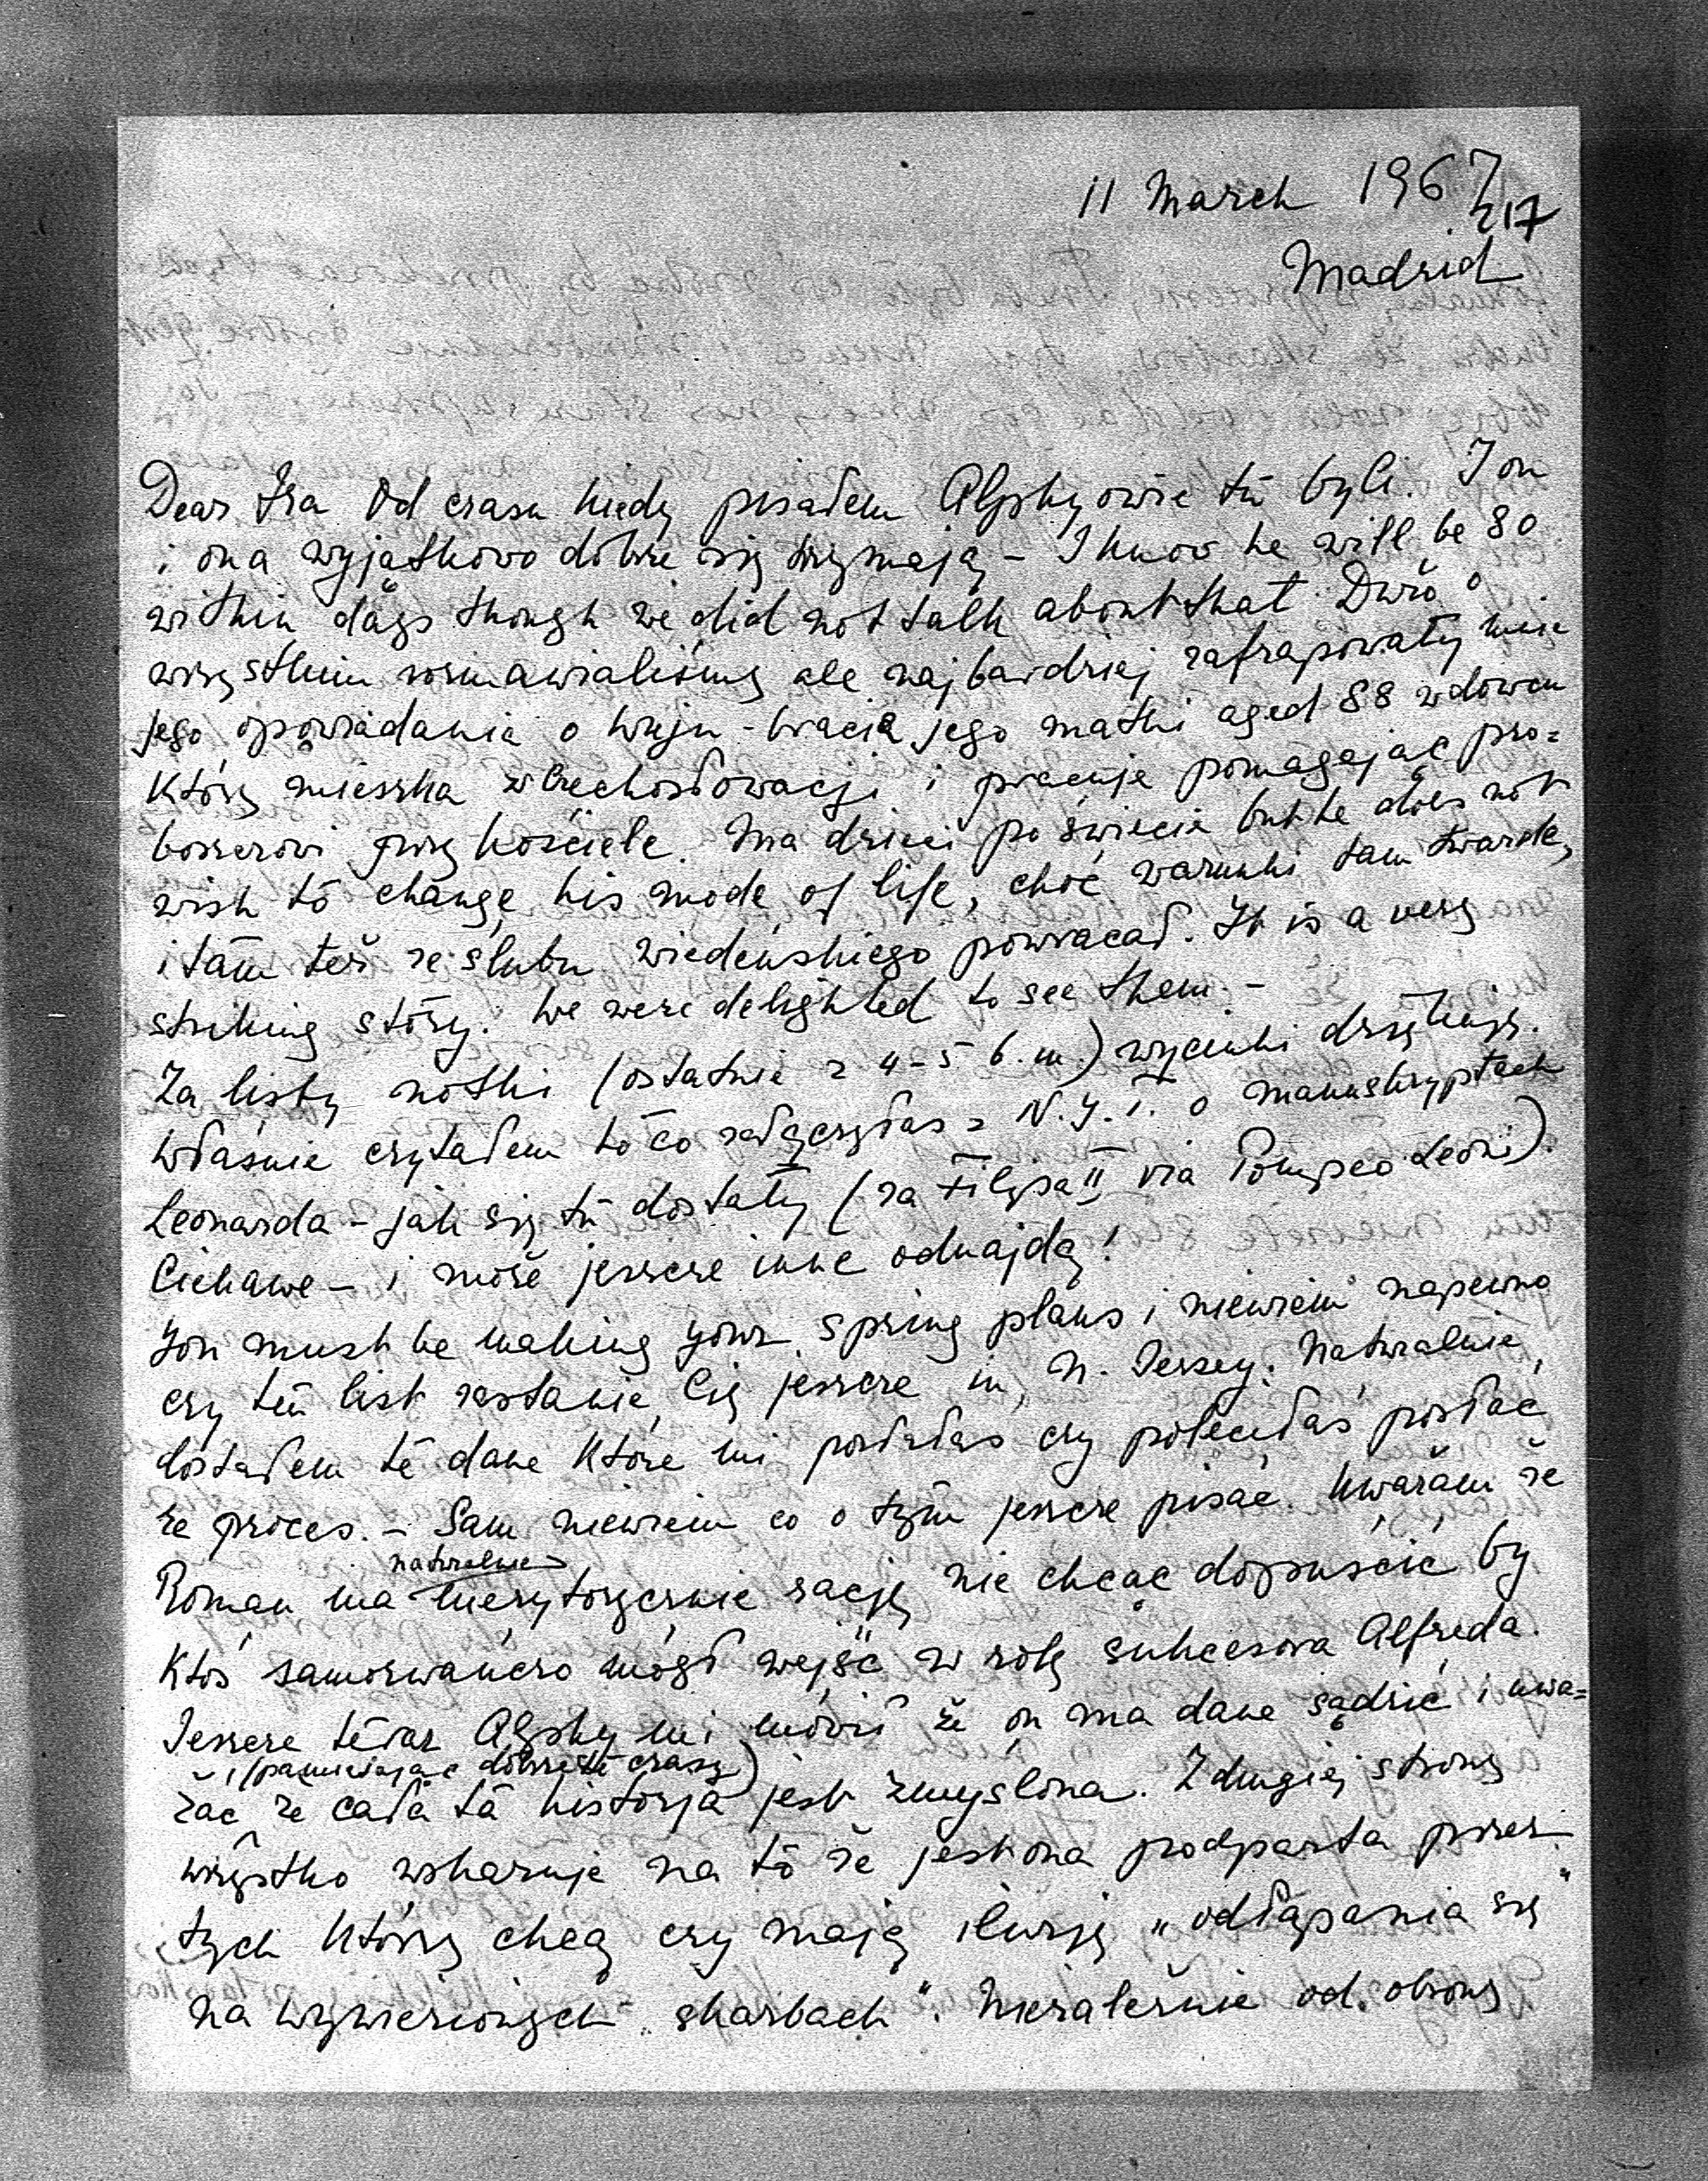 11 March 1967
217
Madrid
Dear Ira Od czasu kiedy pisałem Alphyowie tu byli. I on
i ona wyjątkowo dobrze się trzymają – I know he will be 80
within days though we did not talk about that. Dużo o
wszystkim rozmawialiśmy ale najbardziej zafrapowały mnie
jego opowiadania o wuju – bracie jego matki aged 88 wdowcu
który mieszka w Czechosłowacji i pracuje pomagając pro=
boszczowi przy kościele. Ma dzieci po świecie but he does not
wish to change his mode of life, choć warunki tam twarde,
i tam też ze ślubu wiedeńskiego powracał. It is a very
striking story. We were delighted to see them. –
Za listy notki (ostatnie z 4–5 b.m.) wycinki dziękuję.
Właśnie czytałem to co załączyłaś z N.Y.T. o manuskryptach
Leonarda – jak się tu dostały (za Filipa II via Pompeo Leoni).
Ciekawe – i może jeszcze inne odnajdą!
You must be making your spring plans i niewiem napewno
czy ten list zastanie Cię jeszcze in N. Jersey. Naturalnie,
dostałem te dane które mi posłałaś czy poleciłaś posłać
re proces. – Sam niewiem co o tym jeszcze pisać. Uważam że
naturalnie
Roman ma merytorycznie rację nie chcąc dopuścić by
ktoś samozwańczo mógł wejść w rolę sukcesora Alfreda.
Jeszcze teraz Alphy mi mówił że on ma dane sądzić i uwa=
i (pamiętając dobrze te czasy)
żać że cała ta historja jest zmyślona. Z drugiej strony
wszystko wskazuje na to że jest ona podparta przez
tych którzy chcą czy mają iluzję „odłapania się"
na wywiezionych „skarbach". Niezależnie od obrony